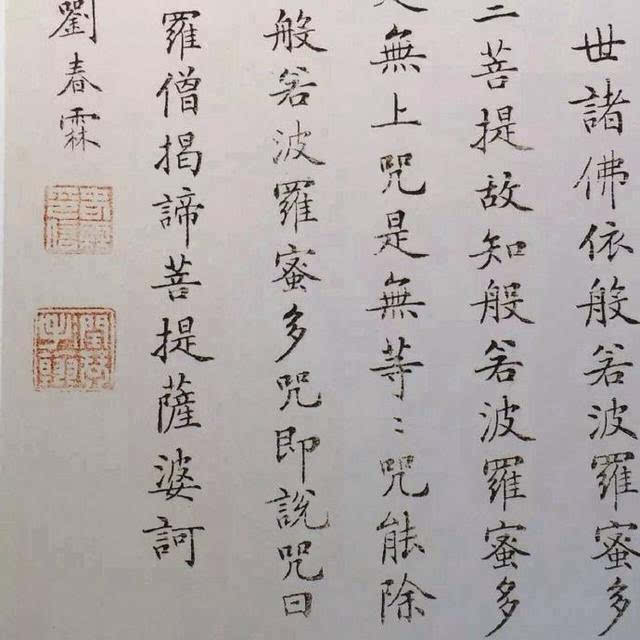 世諸佛依般若波羅蜜多
三菩提故知般若波羅蜜多
是無上咒是無等〻咒能除
般若波羅蜜多咒即說咒曰
羅僧揭諦菩提薩婆訶
劉春霖